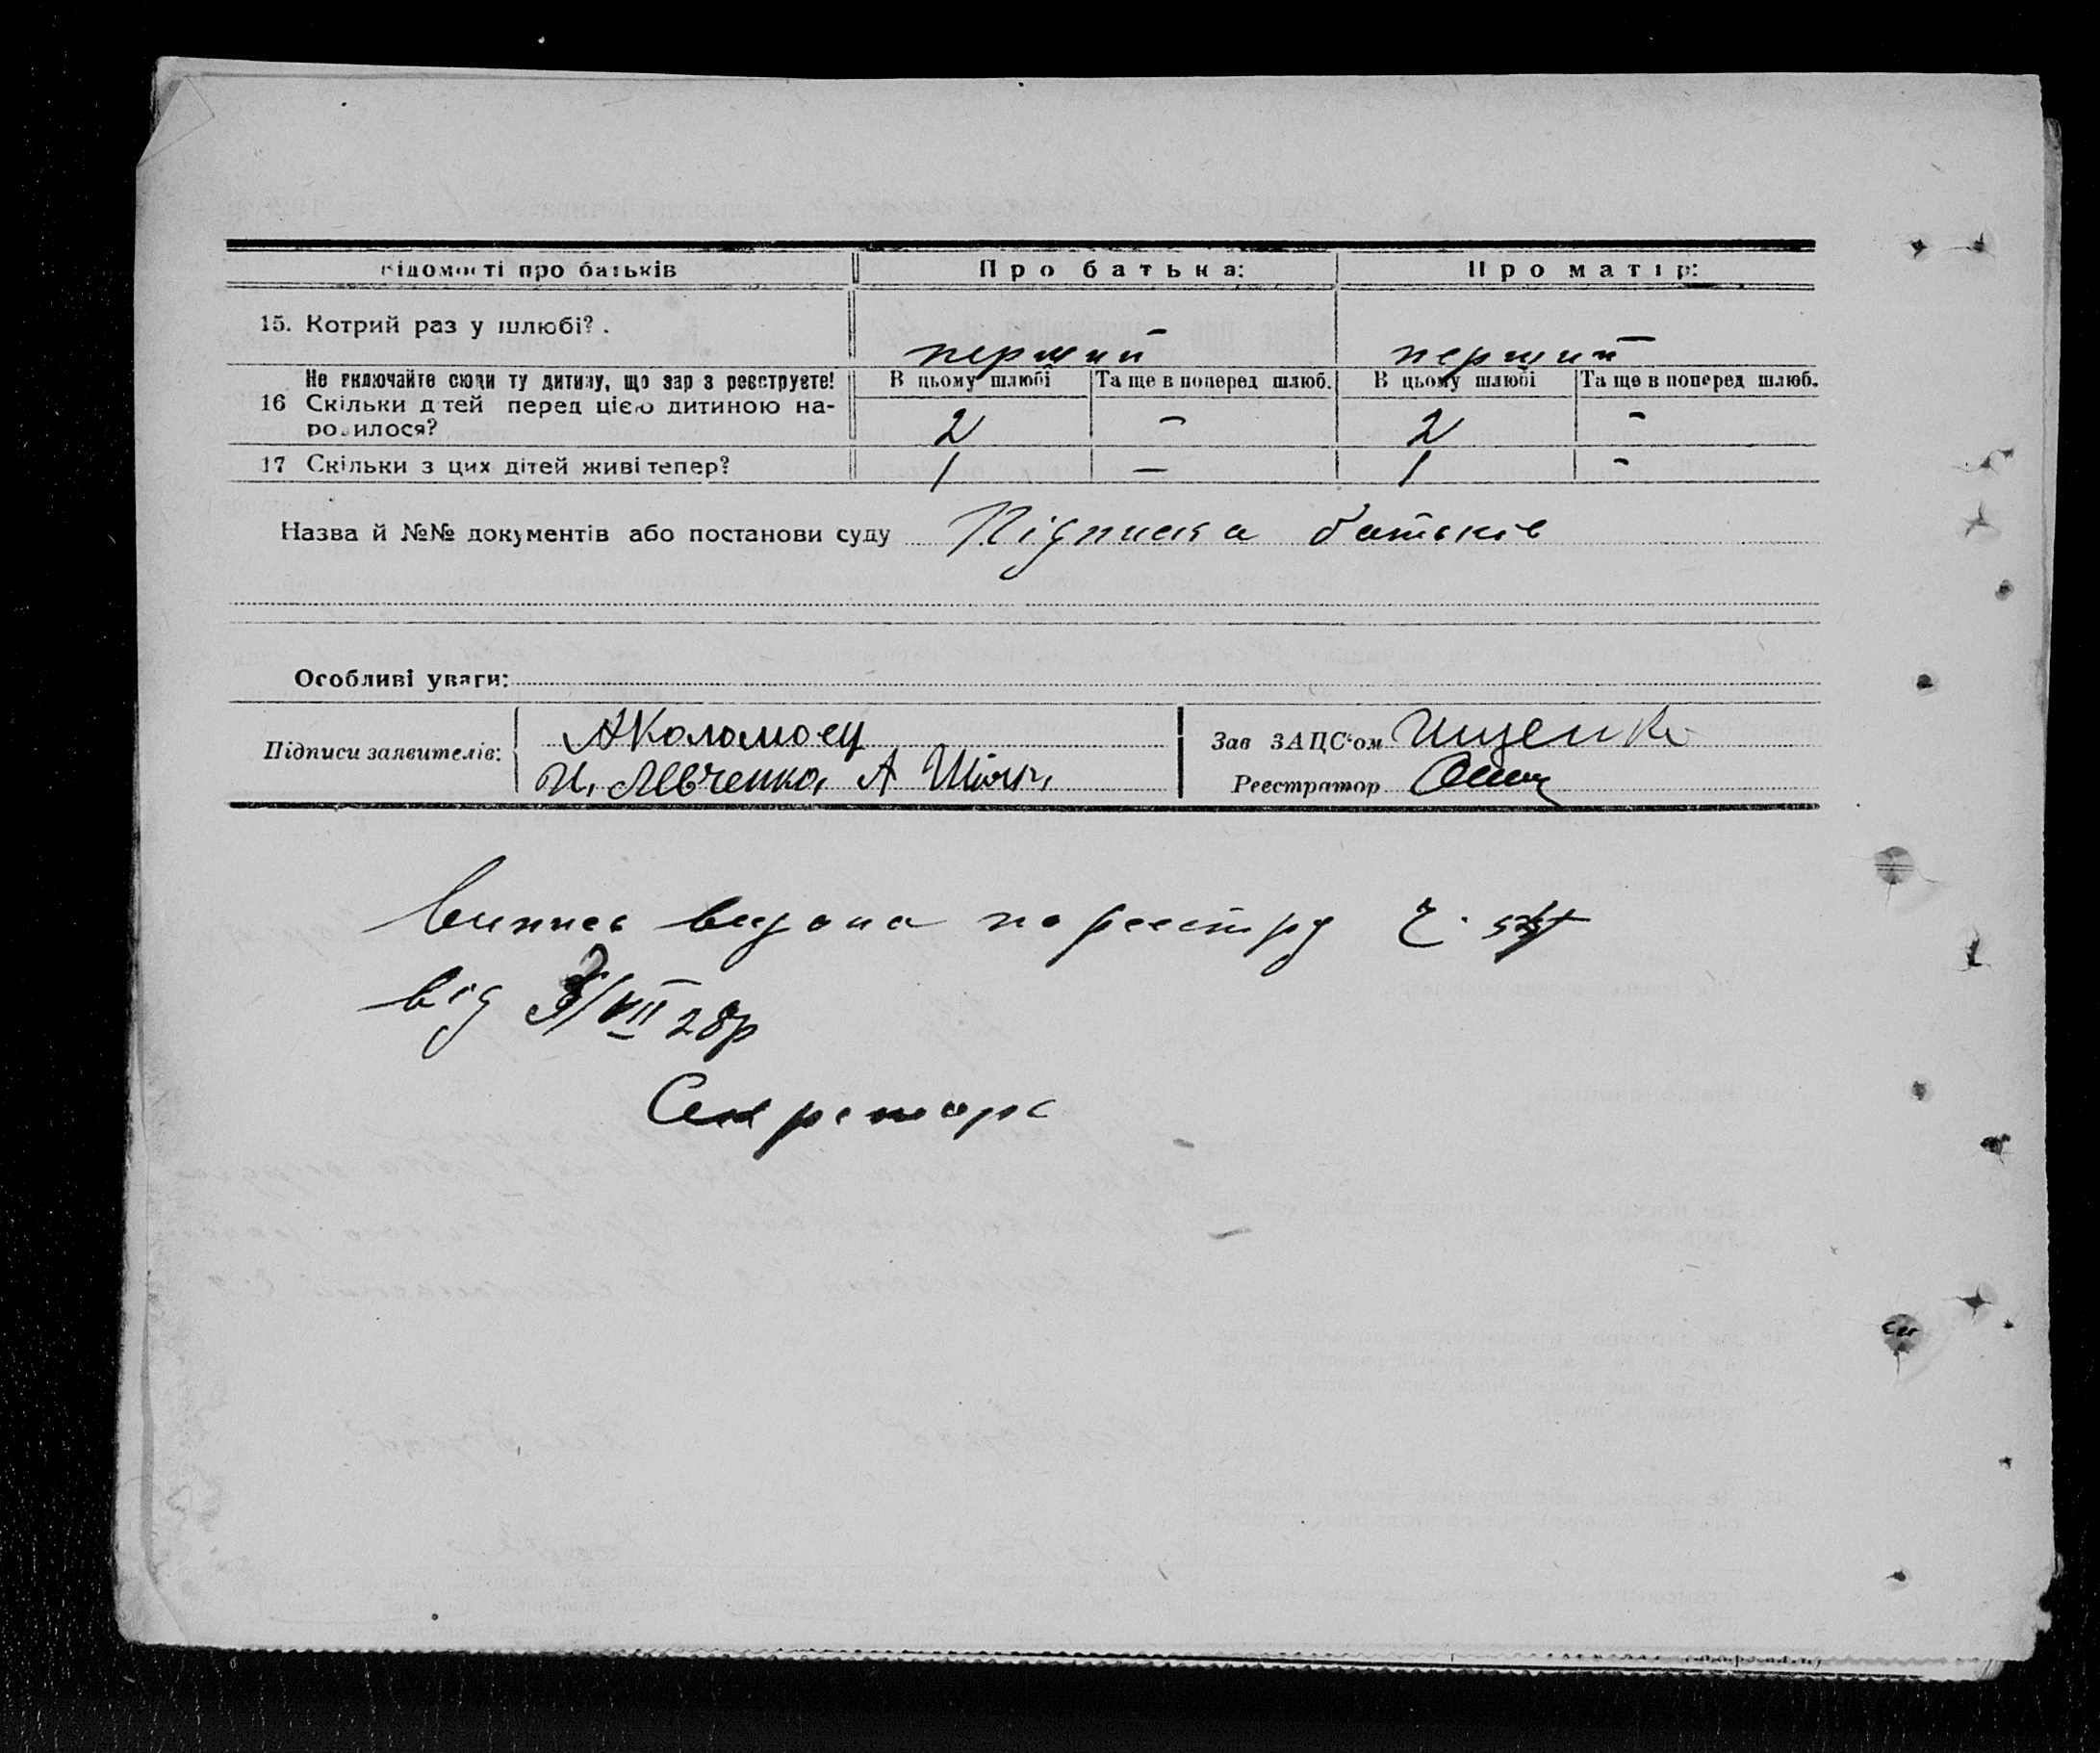 Відомості про батьків Про батька: Про матір:
15. Котрий раз у шлюбі? . перший перший
Не включайте сюди ту дитину, що зар з реєструєте! В цьому шлюбі Та ще в поперед шлюб. В цьому шлюбі Та ще в поперед шлюб.
16 Скільки дітей перед цією дитиною на- 2 – 2 –
родилося?
17 Скільки з цих дітей живі тепер? 1 – 1 –
Назва й №№ документів або постанови суду Підписка батьків
Особливі уваги:
Підписи заявителів: А Коломоец Зав ЗАЦС'ом Ищенко
И. Левченко, А Реєстратор
Випись видана по реєстру Ч.
від /VII 28р
Секретарь